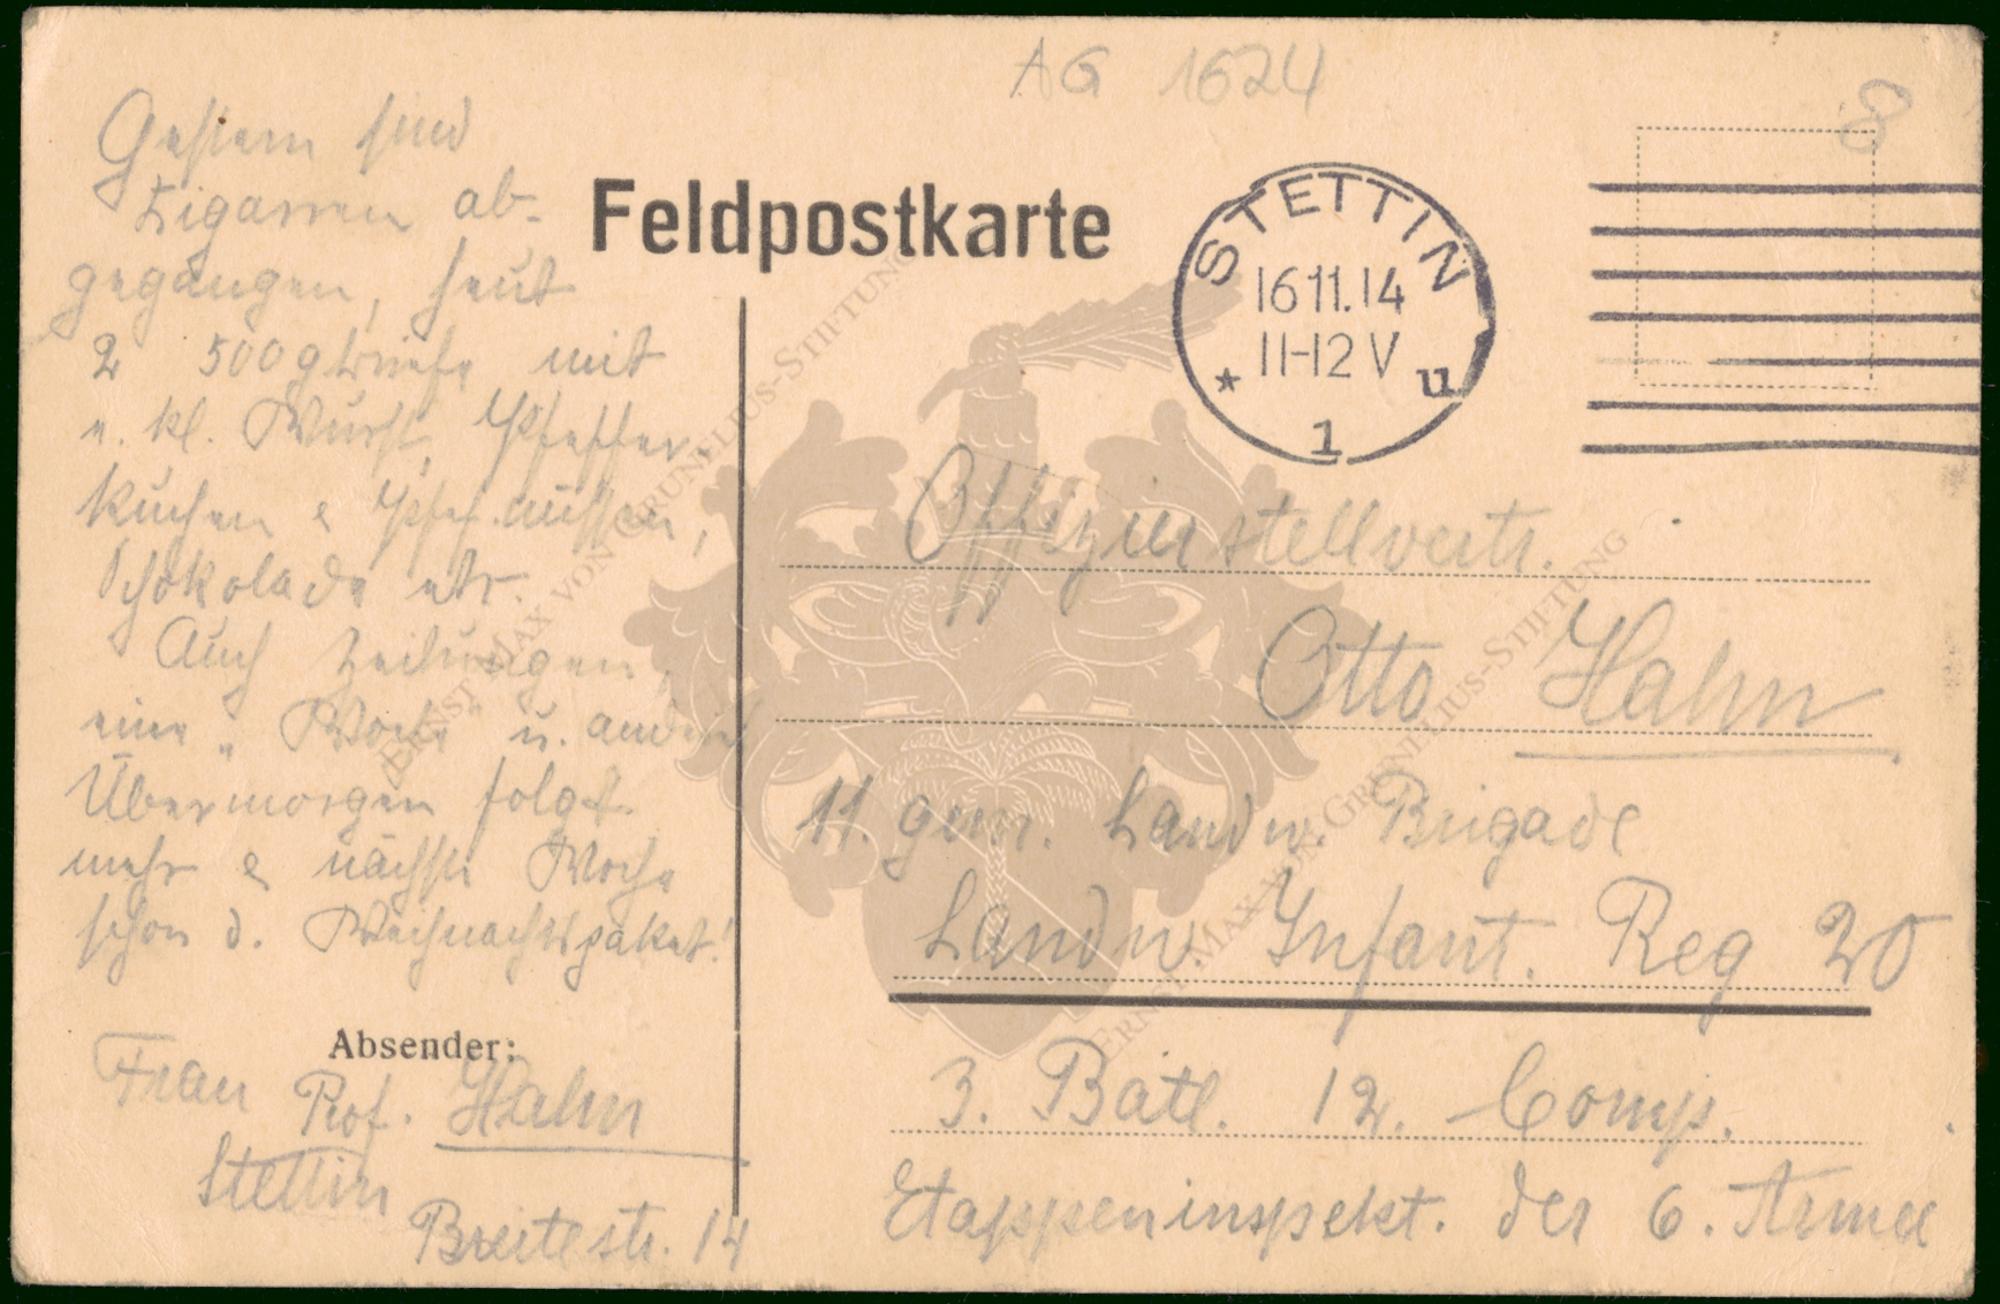 AG 1624
8
Feldpostkarte
STETTIN
16 11.14
11-12 V
* 1 u
Gestern sind
Zigarren ab-
gegangen, heut
2 500 g briefe mit
u. kl. Wurst, Pfeffer-
kuchen & Pfef.nüssen,
Schokolade etc.
Auch Zeitungen,
eine „Woche" u. andere
Übermorgen folgt
mehr & nächste Woche
schon d. Weihnachtspaket!
Absender:
Frau Prof. Hahn
Stettin
Breitestr. 14
Offizierstellvertr.
Otto Hahn
11. gem. Landw. Brigade
Landw. Infant. Reg 20
3. Batl. 12. Comp.
Etappeninspekt. der 6. Armee
ERNST MAX VON GRUNELIUS-STIFTUNG
ERNST MAX VON GRUNELIUS-STIFTUNG